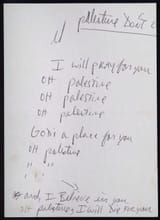 palestine Don't
I will pray for you
OH palestine
OH palestine
OH palestine
GOD: a place for you
OH palestine
" "
" "
and, I Believe in you
OH palestine, I will Die for you